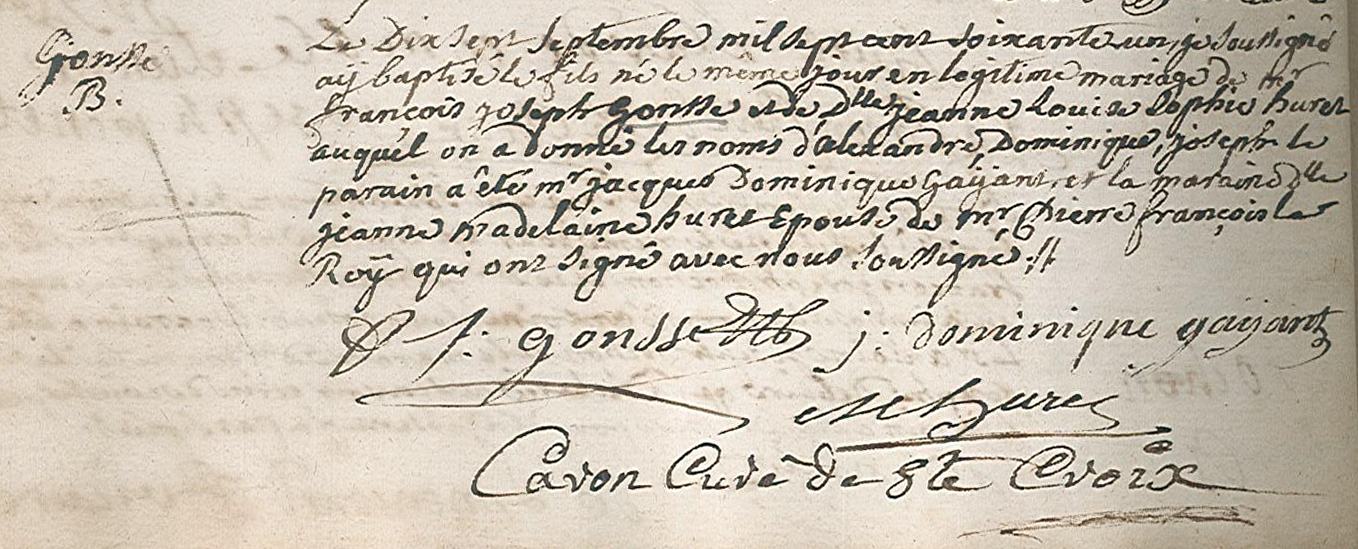 Gonsse
B.
Le Dix sept septembre mil sept cent soixante un, je soussigné
aÿ baptisé le fils né le même jour en legitime mariage de mr
françois joseph Gonsse et de Dlle jeanne Louise Sophie huret
auquél on a donné les noms d'alexandre, Dominique, joseph. le
parain a êté mr jacques Dominique Gaÿant, et la maraine dlle
jeanne Madelaine huret Epouse de mr Pierre françois le
Roÿ qui ont signé avec nous soussigné ://
f: gonsse j: dominique gaÿant
huret
Caron Curé de Ste Croix